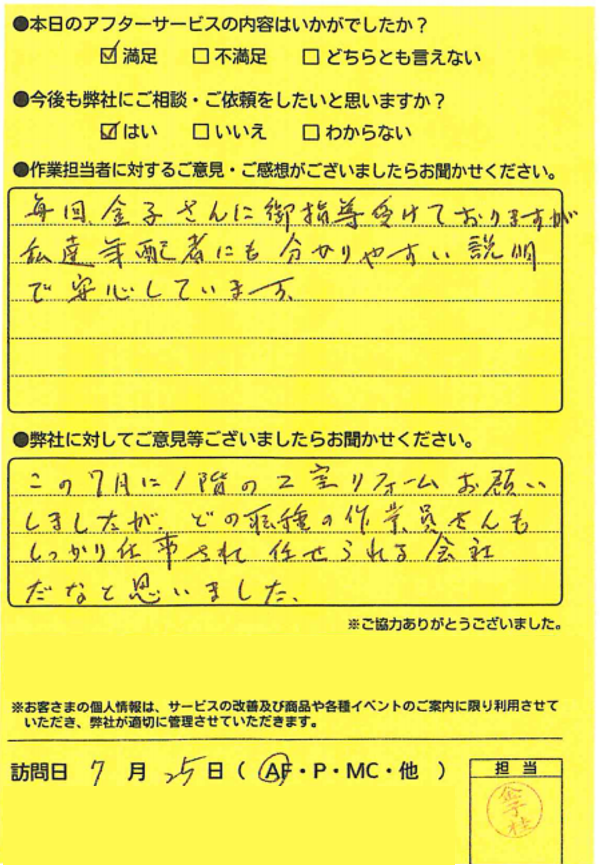 ●本日のアフターサービスの内容はいかがでしたか？
☑満足 □不満足 □どちらとも言えない
●今後も弊社にご相談・ご依頼をしたいと思いますか？
☑はい □いいえ □わからない
●作業担当者に対するご意見・ご感想がございましたらお聞かせください。
毎回、金子さんに御指導受けておりますが
私達年配者にも分かりやすい説明
で安心しています。
●弊社に対してご意見等ございましたらお聞かせください。
この7月に1階の2室リフォームお願い
しましたが、どの職種の作業員さんも
しっかり仕事され任せられる会社
だなと思いました。
※ご協力ありがとうございました。
※お客さまの個人情報は、サービスの改善及び商品や各種イベントのご案内に限り利用させて
いただき、弊社が適切に管理させていただきます。
訪問日 7 月 25 日 ( AF・P・MC・他 )
担 当
金子
桂